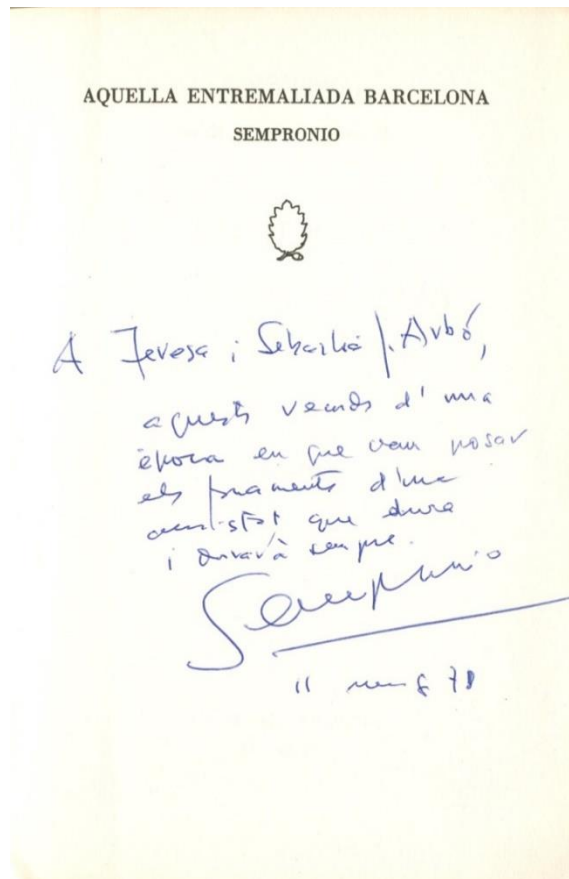 AQUELLA ENTREMALIADA BARCELONA
SEMPRONIO
A Teresa i Sebastià J. Arbó,
aquests records d'una
època en que vam posar
els fonaments d'una
amistat que dura
i durarà sempre.
Sempronio
11 78